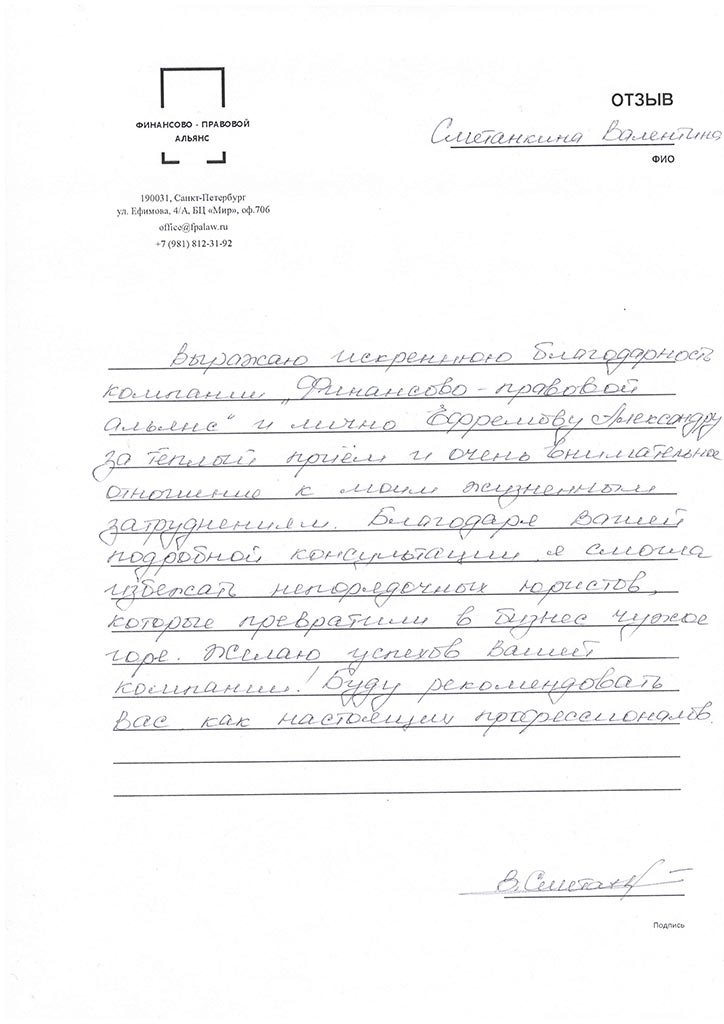 ФИНАНСОВО - ПРАВОВОЙ
АЛЬЯНС
190031, Санкт-Петербург
ул. Ефимова, 4/А, БЦ «Мир», оф.706
office@fpalaw.ru
+7 (981) 812-31-92
ОТЗЫВ
Сметанкина Валентина
ФИО
Выражаю искреннюю благодарность
компании „Финансово-правовой
альянс“ и лично Ефремову Александру
за теплый приём и очень внимательное
отношение к моим жизненным
затруднениям. Благодаря Вашей
подробной консультации я смогла
избежать непорядочных юристов,
которые превратили в бизнес чужое
горе. Желаю успехов Вашей
компании! Буду рекомендовать
Вас как настоящих профессионалов.
В.Сметанк
Подпись